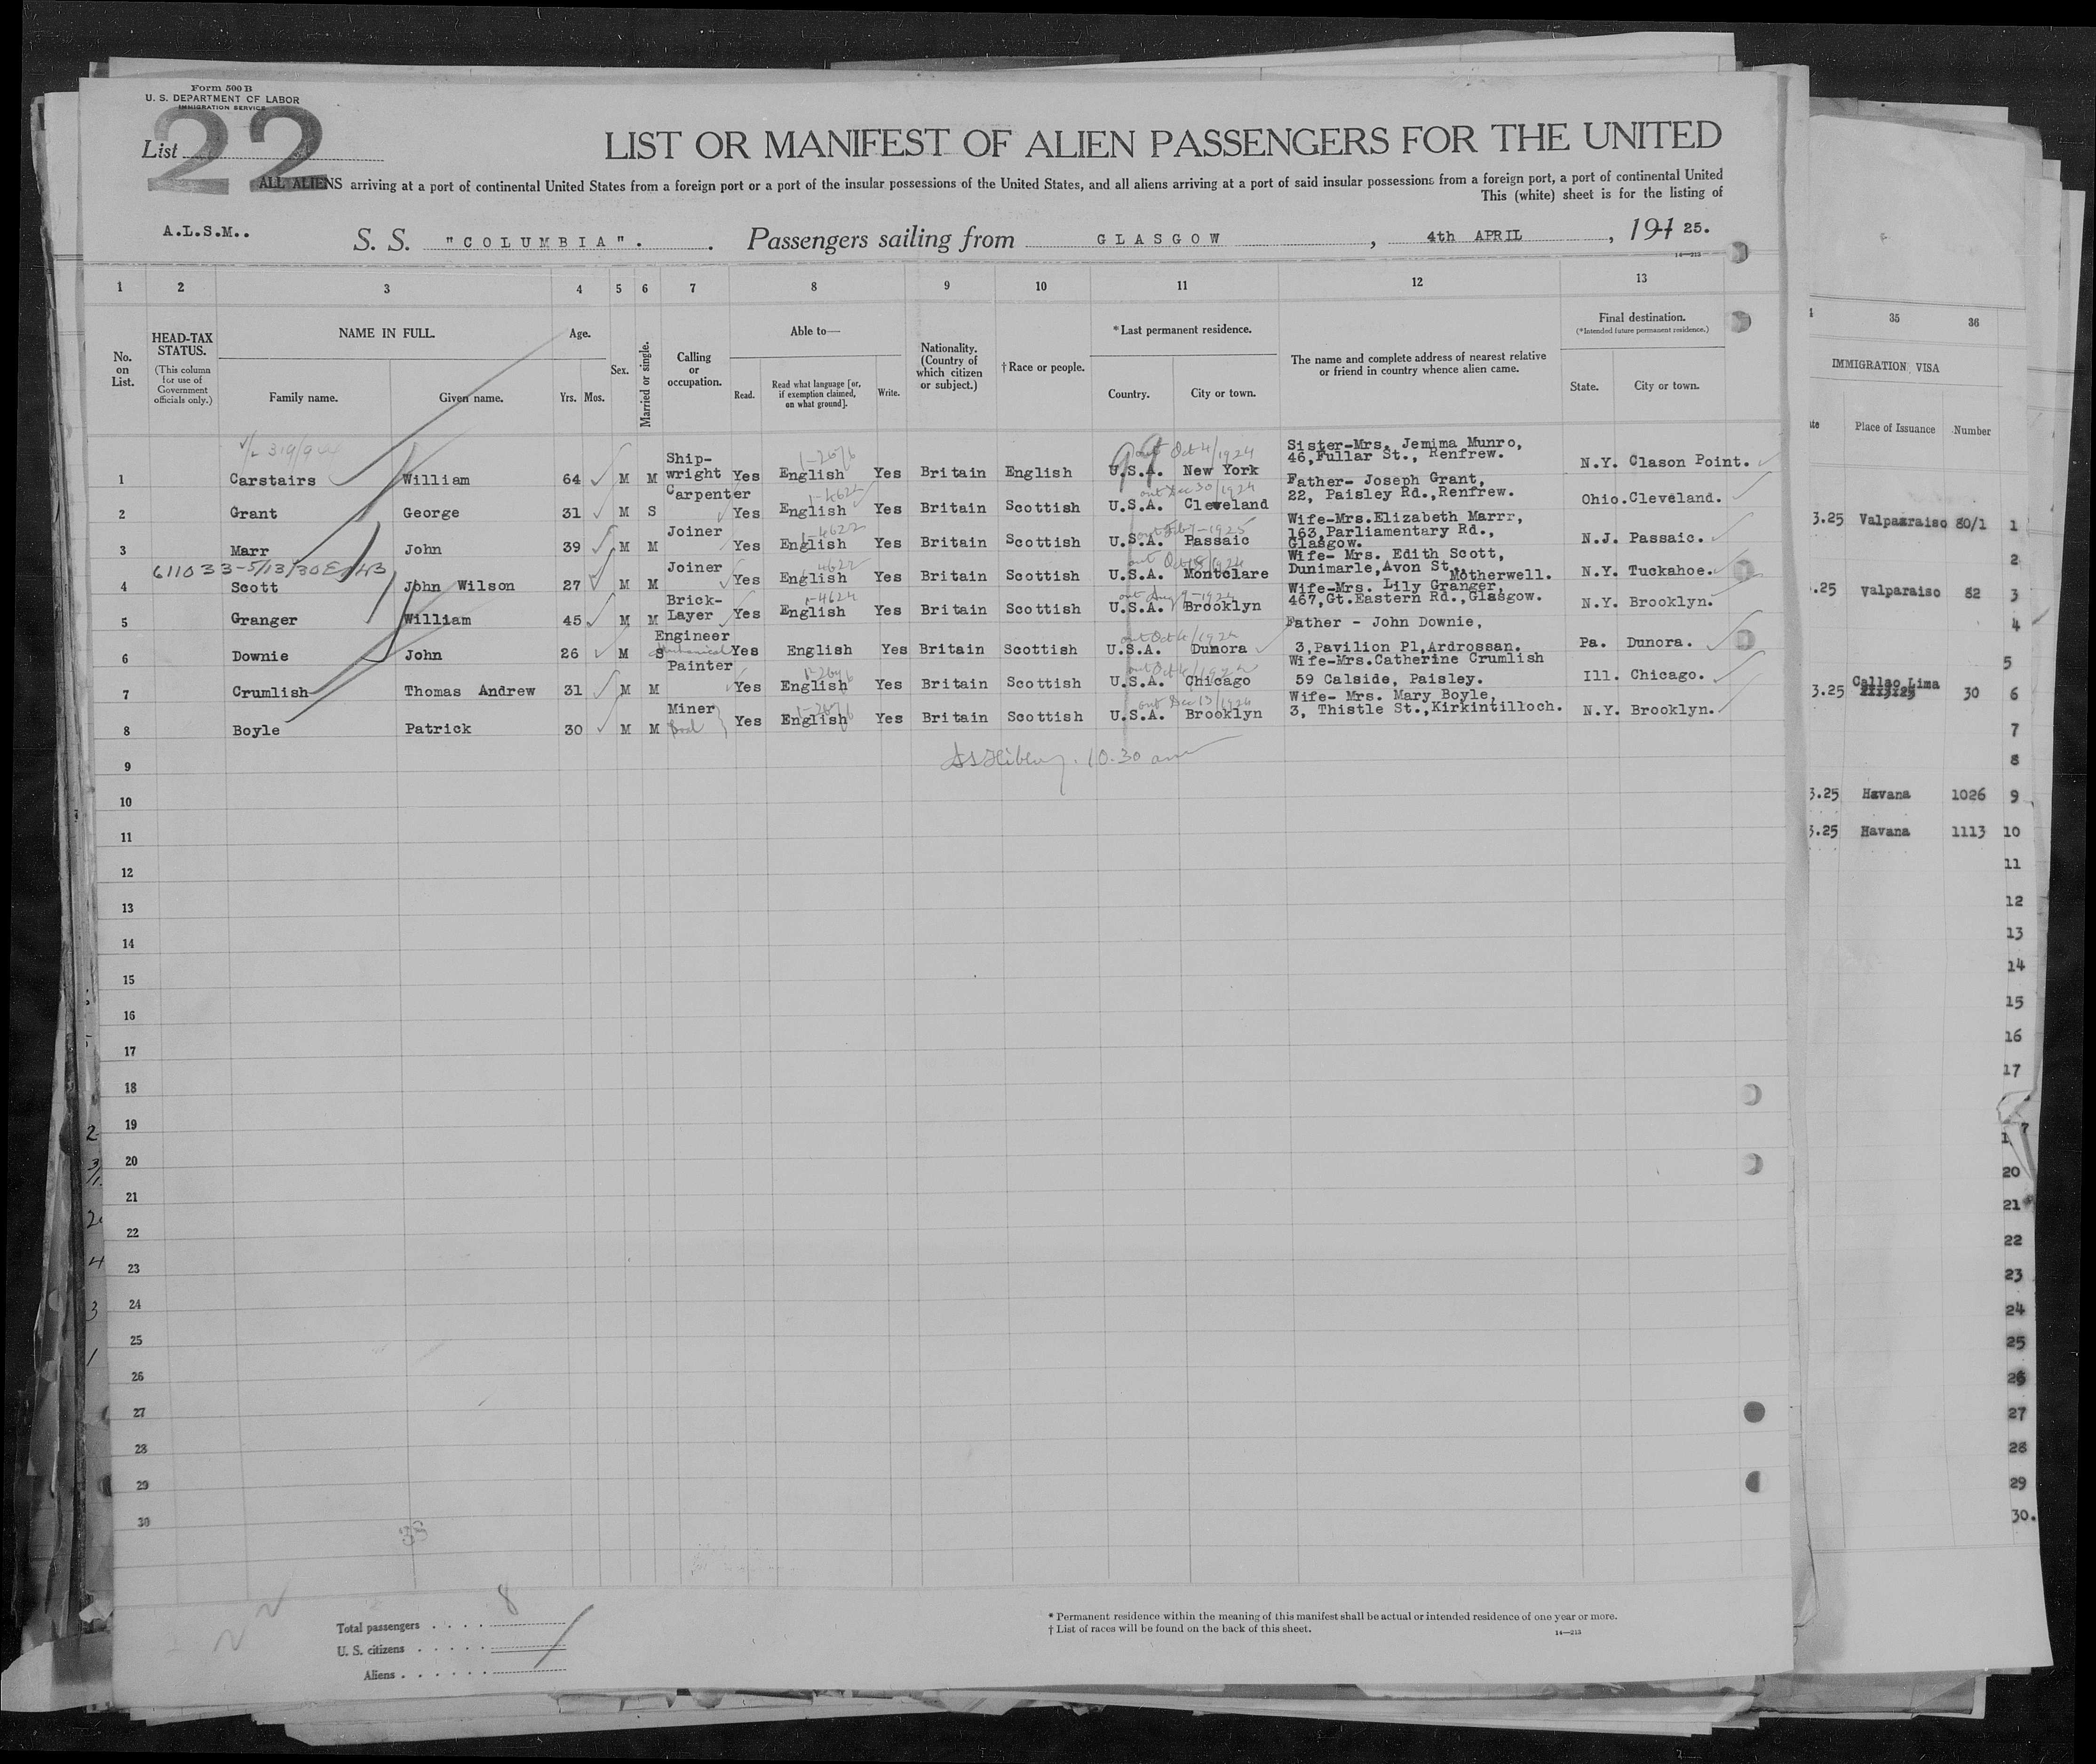 Form 500 B
U. S. DEPARTMENT OF LABOR
IMMIGRATION SERVICE
List 22
LIST OR MANIFEST OF ALIEN PASSENGERS FOR THE UNITED
ALL ALIENS arriving at a port of continental United States from a foreign port or a port of the insular possessions of the United States, and all aliens arriving at a port of said insular possessions from a foreign port, a port of continental United
This (white) sheet is for the listing of
A.L.S.M..
S. S. "COLUMBIA". Passengers sailing from GLASGOW, 4th APRIL, 191 25.
14—213
1 2 3 4 5 6 7 8 9 10 11 12 13
No. on List.
HEAD-TAX STATUS.
(This column for use of Government officials only.)
NAME IN FULL.
Family name. Given name.
Age.
Yrs. Mos.
Sex.
Married or single.
Calling or occupation.
Able to—
Read. Read what language [or, if exemption claimed, on what ground]. Write.
Nationality. (Country of which citizen or subject.)
†Race or people.
*Last permanent residence.
Country. City or town.
The name and complete address of nearest relative or friend in country whence alien came.
Final destination.
(*Intended future permanent residence.)
State. City or town.
1-2676 out Oct 4/1924
1 Carstairs William 64 M M Ship-wright Yes English Yes Britain English U.S.A. New York Sister-Mrs. Jemima Munro, 46,Fullar St., Renfrew. N.Y. Clason Point.
1-4622 out Dec 30/1924
2 Grant George 31 M S Carpenter Yes English Yes Britain Scottish U.S.A. Cleveland Father- Joseph Grant, 22, Paisley Rd.,Renfrew. Ohio. Cleveland.
1-4622
3 Marr John 39 M M Joiner Yes English Yes Britain Scottish U.S.A. Passaic Wife-Mrs.Elizabeth Marrr, 163,Parliamentary Rd., Glasgow. N.J. Passaic.
611033-5/13/30
1-4622
4 Scott John Wilson 27 M M Joiner Yes English Yes Britain Scottish U.S.A. Montclare Wife- Mrs. Edith Scott, Dunimarle,Avon St., Motherwell. N.Y. Tuckahoe.
1-4624 out Aug 9-1924
5 Granger William 45 M M Brick-Layer Yes English Yes Britain Scottish U.S.A. Brooklyn Wife-Mrs. Lily Granger, 467,Gt.Eastern Rd.,Glasgow. N.Y. Brooklyn.
out Oct 4/1924
6 Downie John 26 M S Engineer Mechanical Yes English Yes Britain Scottish U.S.A. Dunora Father - John Downie, 3,Pavilion Pl,Ardrossan. Pa. Dunora.
1-2676 out Oct 4/1924
7 Crumlish Thomas Andrew 31 M M Painter Yes English Yes Britain Scottish U.S.A. Chicago Wife-Mrs.Catherine Crumlish 59 Calside, Paisley. Ill. Chicago.
1-2676 out Dec 13/1924
8 Boyle Patrick 30 M M Miner Yes English Yes Britain Scottish U.S.A. Brooklyn Wife- Mrs. Mary Boyle, 3, Thistle St.,Kirkintilloch. N.Y. Brooklyn.
9
10.30 am
10
11
12
13
14
15
16
17
18
19
20
21
22
23
24
25
26
27
28
29
30
Total passengers 8
U. S. citizens
Aliens
* Permanent residence within the meaning of this manifest shall be actual or intended residence of one year or more.
† List of races will be found on the back of this sheet.
14—213
35 36
IMMIGRATION VISA
Place of Issuance Number
3.25 Valparaiso 80/1 1
2
.25 Valparaiso 82 3
4
5
3.25 Callao Lima 30 6
7
8
3.25 Havana 1026 9
3.25 Havana 1113 10
11
12
13
14
15
16
17
20
21
22
23
24
25
26
27
28
29
30.